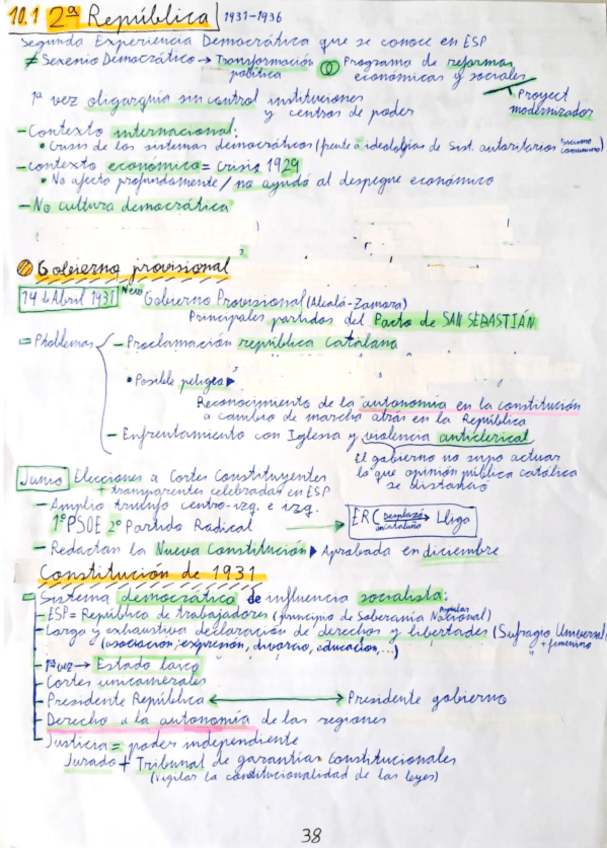 10.1 2ª República 1931-1936
Segunda Experiencia Democrática que se conoce en ESP
≠ Sexenio Democrático → Transformación política Programa de reformas económicas y sociales
Proyect modernizador
1ª vez oligarquía sin control instituciones y centros de poder
- Contexto internacional:
• Crisis de los sistemas democráticos (frente a ideologías de Sist. autoritarios
- contexto económico = Crisis 1929
• No afecto profundamente / no ayudó al despegue económico
- No cultura democrática
Gobierno provisional
14 de Abril 1931 Gobierno Provisional (Alcalá-Zamora)
Principales partidos del Pacto de SAN SEBASTIÁN
= Problemas - Proclamación república catalana
• Posible peligro
Reconocimiento de la autonomía en la constitución
a cambio de marcha atrás en la República
- Enfrentamiento con Iglesia y violencia anticlerical
El gobierno no supo actuar
lo que opinión pública católica
se distancio
Junio Elecciones a Cortes Constituyentes
+ transparentes celebradas en ESP
- Amplio triunfo centro-izq. e izq.
1º PSOE 2º Partido Radical → ERC desplazó en Cataluña → Lliga
- Redactan la Nueva Constitución ▸ Aprobada en diciembre
Constitución de 1931
= Sistema democrático de influencia socialista:
- ESP = República de trabajadores (principio de Soberanía Nacional) Popular
- Larga y exhaustiva declaración de derechos y libertades (Sufragio Universal
" + femenino
(asociación, expresión, divorcio, educación,...)
- 1ª vez → Estado laico
- Cortes unicamerales
- Presidente República ↔ Presidente gobierno
- Derecho a la autonomía de las regiones
- Justicia = poder independiente
Jurado + Tribunal de garantías Constitucionales
(Vigilar la constitucionalidad de las leyes)
38